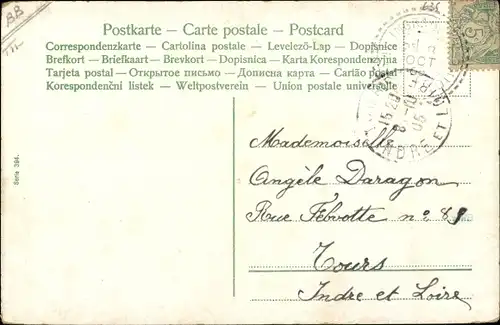 BB
Postkarte – Carte postale – Postcard
Correspondenzkarte – Cartolina postale – Levelező-Lap – Dopisnice
Brefkort – Briefkaart – Brevkort – Dopisnica – Karta Korespondenzyjna
Tarjeta postal – Открытое письмо – Дописна карта – Carião postal
Korespondenční listek – Weltpostverein – Union postale universelle
OCT
15 20
8 -10
05
INDRE ET
5
Serie 394.
Mademoiselle
Angèle Daragon
Rue Febvotte n° 89
Tours
Indre et Loire